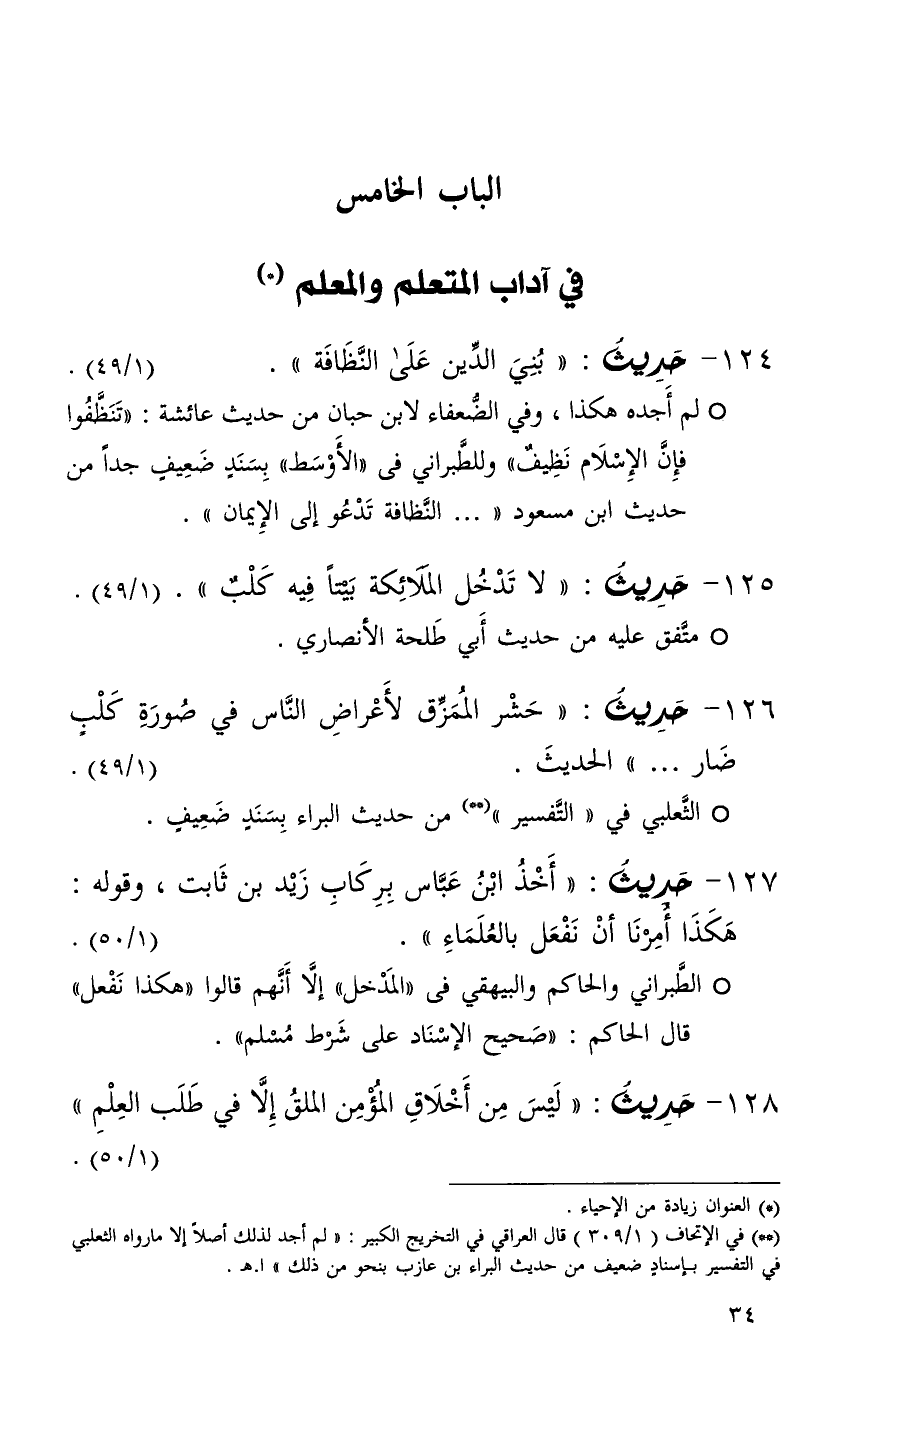 الباب الخامس
في آداب المتعلم والمعلم (*)
١٢٤- حَدِيثُ : « بُنِيَ الدِّين عَلَىٰ النَّظَافَة » . (٤٩/١) .
○ لم أجده هكذا ، وفي الضُّعفاء لابن حبان من حديث عائشة : «تَنَظَّفُوا
فإِنَّ الإِسْلَام نَظِيفٌ» وللطَّبراني فى «الأَوْسَط» بِسَنَدٍ ضَعِيفٍ جداً من
حديث ابن مسعود « ... النَّظافة تَدْعُو إلى الإِيمان » .
١٢٥- حَدِيثُ : « لا تَدْخُل المَلَائِكة بَيْتاً فِيه كَلْبٌ » . (٤٩/١) .
○ متَّفق عليه من حديث أَبي طَلحة الأنصاري .
١٢٦- حَدِيثُ : « حَشْر المُمَزِّق لأَعْراضِ النَّاس في صُورَةِ كَلْبٍ
ضَار ... » الحديثَ . (٤٩/١) .
○ الثَّعلبي في « التَّفسير »(**) من حديث البراء بِسَنَدٍ ضَعِيفٍ .
١٢٧- حَدِيثُ : « أَخْذُ ابْنُ عَبَّاس بِرِكَابِ زَيْد بن ثَابت ، وقوله :
هَكَذَا أُمِرْنَا أنْ نَفْعَل بالعُلَمَاءِ » . (٥٠/١) .
○ الطَّبراني والحاكم والبيهقي فى «المَدْخل» إلَّا أَنَّهم قالوا «هكذا نَفْعل»
قال الحاكم : «صَحيح الإسْنَاد على شَرْط مُسْلم» .
١٢٨- حَدِيثُ : « لَيْسَ مِن أَخْلَاقِ المُؤْمِن الملقُ إِلَّا في طَلَب العِلْمِ »
(٥٠/١) .
(*) العنوان زيادة من الإحياء .
(**) في الإتحاف ( ٣٠٩/١ ) قال العراقي في التخريج الكبير : « لم أجد لذلك أصلاً إلا مارواه الثعلبي
في التفسير بإسنادٍ ضعيف من حديث البراء بن عازب بنحو من ذلك » ا.هـ .
٣٤